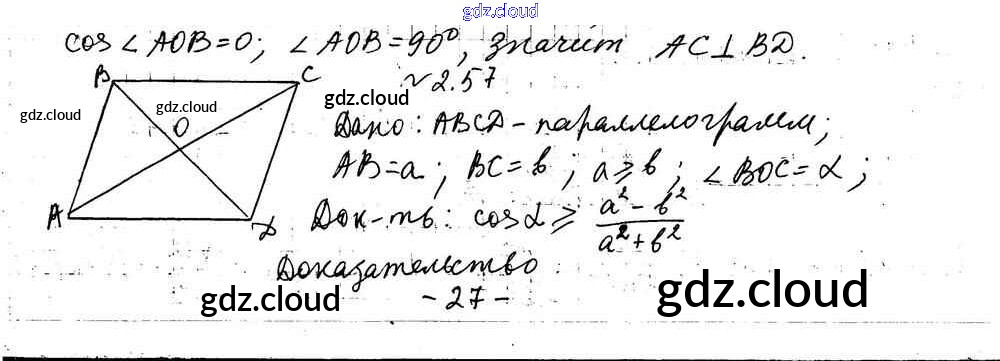 gdz.cloud
cos ∠ AOB = 0; ∠ AOB = 90°, значит AC ⊥ BD.
~ 2.57
B C
gdz.cloud gdz.cloud gdz.cloud
O
Дано: ABCD - параллелограмм;
AB = a; BC = b; a ≥ b; ∠ BOC = α;
A D
Док-ть: cos α ≥ (a² - b²) / (a² + b²)
Доказательство
- 27 -
gdz.cloud gdz.cloud